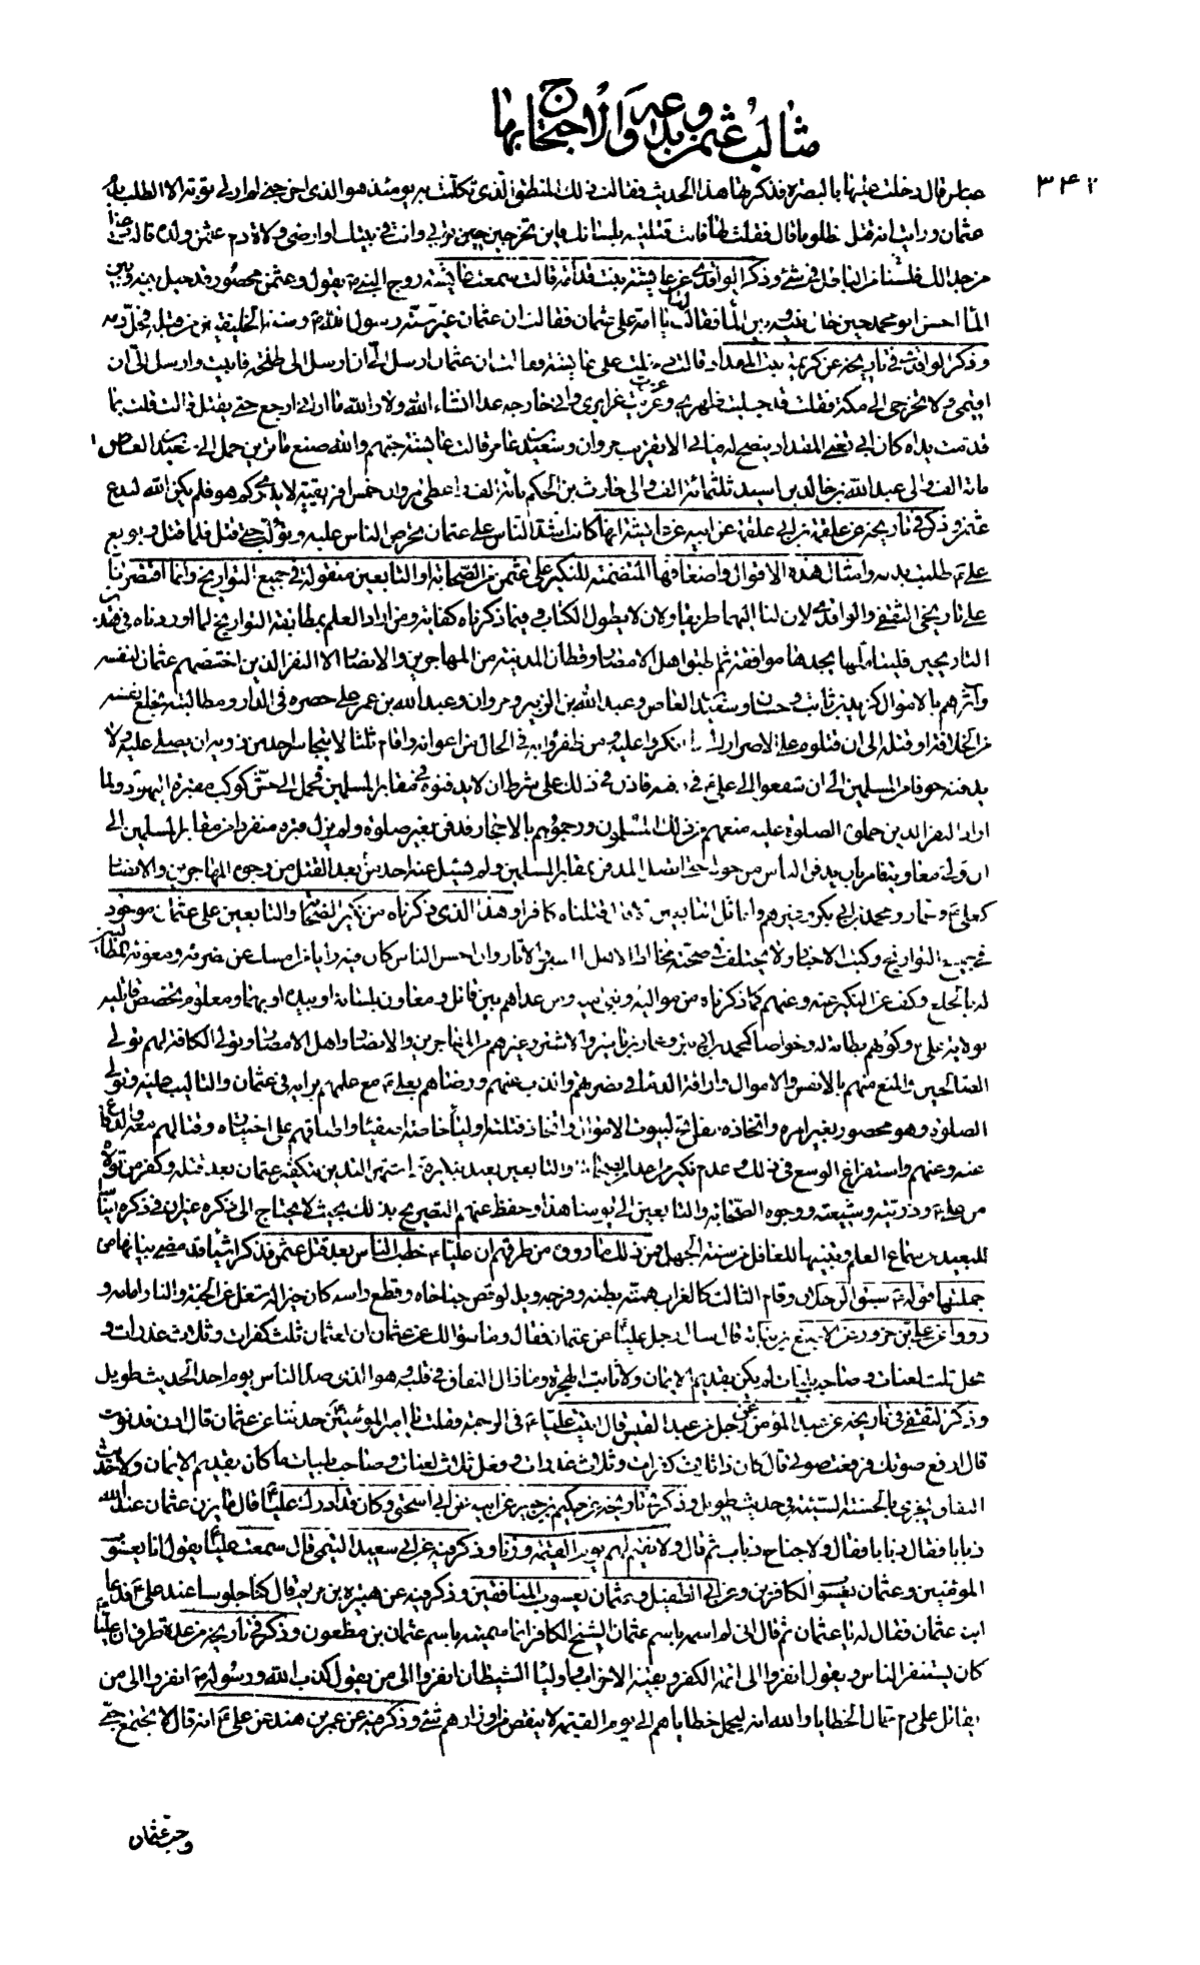 مثالب عثمن وبدعه والاحتجاج بها
۳۴۲
عباس قال دخلت عليها بالبصرة فذكرتها هذا الحديث فقالت ذلك المنطق الذي تكلمت به يومئذ هو الذي اخرجني لم ار لي توبة الا الطلب بدم
عثمان ورايت انه قتل مظلوما قال فقلت لها فانت قتلتيه بلسانك فاين تخرجين توبي وانت في بيتك او ارضي ولاة دم عثمن ولده قالت
من جدالك فلسنا من الباطل في شئ وذكر الواقدي عن عايشة بنت قدامة قالت سمعت عايشة زوج النبي ص يقول وعثمن محصور قد حيل بينه وبين
الماء احسن ابو محمد حين حال بينه وبين الماء فقالت لها يا امه على عثمان فقالت ان عثمان غير سنة رسول الله ص وسنة الخليفتين من قبله فحل دمه
وذكر الواقدي في تاريخه عن كريمة بنت المقداد قالت دخلت على عايشة فقالت ان عثمان ارسل الي ان ارسل الى طلحة فابيت وارسل الي ان
اقيمي ولا تخرجي الى مكة فقلت قد جلبت ظهري وغريت غرايري واني خارجة غدا انشاء الله ولا والله ما اراني ارجع حتى يقتل قالت قلت بما
قدمت يداه كان ابي تعني المقداد ينصح له فيابى الا تقريب مروان وسعيد بن عامر قالت عايشة حبهم والله صنع ما ترين حمل الى سعيد بن العاص
مائة الف والى عبد الله بن خالد بن اسيد ثلثمائة الف والى حارث بن الحكم مائة الف واعطى مروان خمس افريقية لا يدرى كم هو فلم يكن الله ليدع
عثمن وذكر في تاريخه عن علقمة بن ابي علقمة عن ابيه عن عايشة انها كانت اشد الناس على عثمان تحرض الناس عليه وتؤلب حتى قتل فلما قتل وبويع
علي ع طلبت بدمه وامثال هذه الاقوال واضعافها المتضمنة للنكير على عثمن من الصحابة والتابعين منقولة في جميع التواريخ وانما اقتصرنا
على تاريخي الثقفي والواقدي لان لنا اليهما طريقا ولان لا يطول الكتاب وفيما ذكرناه كفاية ومن اراد العلم بمطابقة التواريخ لما اوردناه في هذين
التاريخين فليتاملها يجدها موافقة ثم اطبق اهل الامصار وقطان المدينة من المهاجرين والانصار الا النفر الذين اختصهم عثمان لنفسه
وآثرهم بالاموال كزيد بن ثابت وحسان وسعيد بن العاص وعبد الله بن الزبير ومروان وعبد الله بن عمر على حصره في الدار ومطالبته بخلع نفسه
من الخلافة او قتله الى ان قتلوه على الاصرار ما انكروا عليه ومن ظفروا به في الحال من اعوانه واقام ثلثا لا يتجاسر احد من ذويه ان يصلي عليه ولا
يدفنه خوفا من المسلمين الى ان شفعوا الى علي ع في دفنه فاذن في ذلك على شرط ان لا يدفنوه في مقابر المسلمين فحمل الى حش كوكب مقبرة اليهود ولما
اراد النفر الذين حملوه الصلوة عليه منعهم من ذلك المسلمون ورجموهم بالاحجار فدفن بغير صلوة ولم يزل قبره منفردا من مقابر المسلمين الى
ان ولى معاوية فامر بان يدفن الناس من حوله حتى اتصل المدفن بمقابر المسلمين ولم يسئل عنه احد من بعد القتل من وجوه المهاجرين والانصار
كعلي ع وعمار ومحمد بن ابي بكر وغيرهم واماثل التابعين الا قال قتلناه كافرا وهذا الذي ذكرناه من نكير الصحابة والتابعين على عثمان موجود
في جميع التواريخ وكتب الاخبار ولا يختلف في صحته مخالط لاهل السير والاثار وان احسن الناس كان فيه رايا من امسك عن نصرته ومعونة المطالبين
له بالخلع وكف عن النكير عنه وعنهم كما ذكرناه من مواليه وبني اميه ومن عداهم بين قاتل ومعاون بلسانه او بيده او بهما ومعلوم تخصص قاتليه
بولاية علي ع وكونهم بطانة له وخواصا كمحمد بن ابي بكر وعمار بن ياسر والاشتر وغيرهم من المهاجرين والانصار واهل الامصار وتولي الكافة لهم تولي
الصالحين والمنع منهم بالانفس والاموال واراقة الدماء في نصرتهم والذب عنهم ورضاهم بعلي ع مع علمهم برايه في عثمان والتاليب عليه وتولي
الصلوة وهو محصور بغير امره واتخاذه مفاتيح لبيوت الاموال واتخاذ قتلته اولياء خاصة اصفياء واطباقهم على اختياره وقتالهم معه والدفاع
عنه وعنهم واستفراغ الوسع في ذلك وعدم نكير من احد من الصحابة والتابعين يعتد بنكيره ثم اشتهر التدين بتكفير عثمان بعد قتله وكفر من تولاه
من علي ع وذريته وشيعته ووجوه الصحابة والتابعين الى يومنا هذا وحفظ عنهم التصريح بذلك بحيث لا يحتاج الى ذكره غير ان في ذكره ايناسا
للبعيد من سماع العلم وتنبيها للغافل من سنة الجهل فمن ذلك ما روى من طرقهم ان عليا ع خطب الناس بعد قتل عثمن فذكر اشياء قد مضى بيانها من
جملتها قوله ع سبق الرجلان وقام الثالث كالغراب همته بطنه وفرجه ويله لو قص جناحاه وقطع راسه كان خيرا له شغل عن الجنة والنار امامه و
رووا عن علي بن حزور عن الاصبغ بن نباتة قال سال رجل عليا ع عن عثمان فقال وما سؤالك عن عثمان ان لعثمان ثلث كفرات وثلاث غدرات و
محل ثلث لعنات وصاحب بليات لم يكن بقديم الايمان ولا ثابت الهجرة وما زال النفاق في قلبه وهو الذي صد الناس يوم احد الحديث طويل
وذكر الثقفي في تاريخه عن عبد المؤمن عن رجل من عبد القيس قال اتيت عليا ع في الرحبة فقلت يا امير المؤمنين حدثنا عن عثمان قال ادن فدنوت
قال ارفع صوتك فرفعت صوتي قال كان ذا ثلاث كفرات وثلاث غدرات وفعل ثلاث لعنات وصاحب بليات ما كان بقديم الايمان ولا حديث
النفاق يجزى بالحسنة السيئة في حديث طويل وذكر في تاريخه عن حكيم بن جبير عن ابيه عن ابي اسحق وكان قد ادرك عليا ع قال ما يزن عثمان عند الله
ذبابا فقال ذبابا فقال ولا جناح ذباب ثم قال ولا نقيم لهم يوم القيمة وزنا وذكر فيه عن ابي سعيد التيمي قال سمعت عليا ع يقول انا يعسوب
المؤمنين وعثمان يعسوب الكافرين وعن ابي الطفيل وعثمان يعسوب المنافقين وذكر فيه عن هبيرة بن مريم قال كنا جلوسا عند علي ع فدعا
ابنه عثمان فقال له يا عثمان ثم قال اني لم اسمه باسم عثمان الشيخ الكافر انما سميته باسم عثمان بن مظعون وذكر في تاريخه من عدة طرق ان عليا ع
كان يستنفر الناس ويقول انفروا الى ائمة الكفر وبقية الاحزاب واولياء الشيطان انفروا الى من يقول كذب الله ورسوله ص انفروا الى من
يقاتل على دم حمال الخطايا والله انه ليحمل خطاياهم الى يوم القيمة لا ينقص من اوزارهم شئ وذكر فيه عن عمر بن هند عن علي ع انه قال لا يجتمع حبي
وحب عثمان